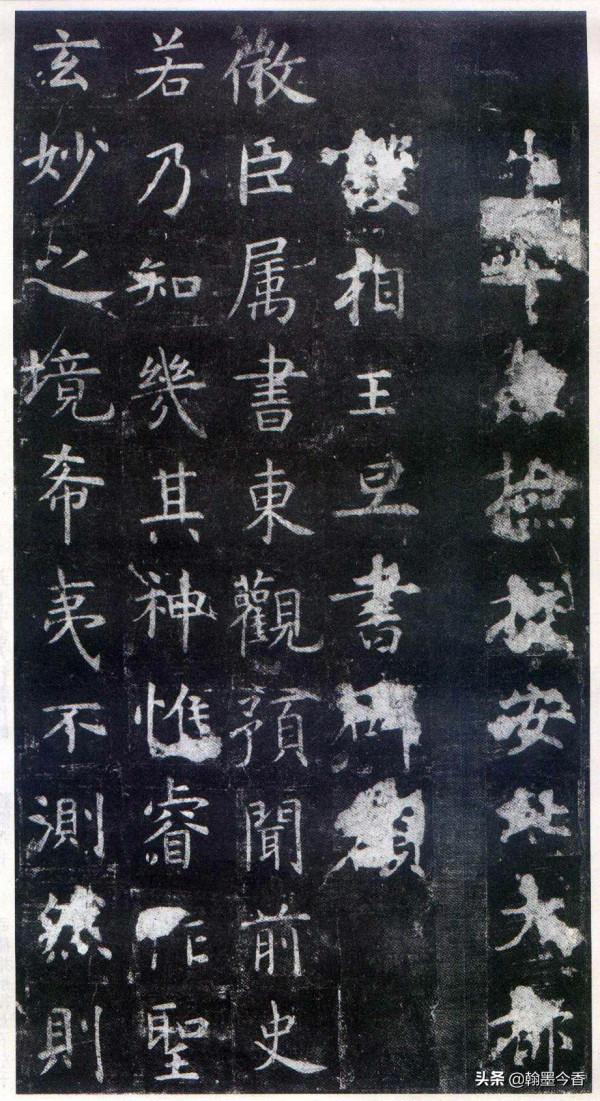 撿挍安北大都
護相王旦書碑額
微臣属書東觀預聞前史
若乃知幾其神惟睿作聖
玄妙之境希夷不測然則
头条 @翰墨今香